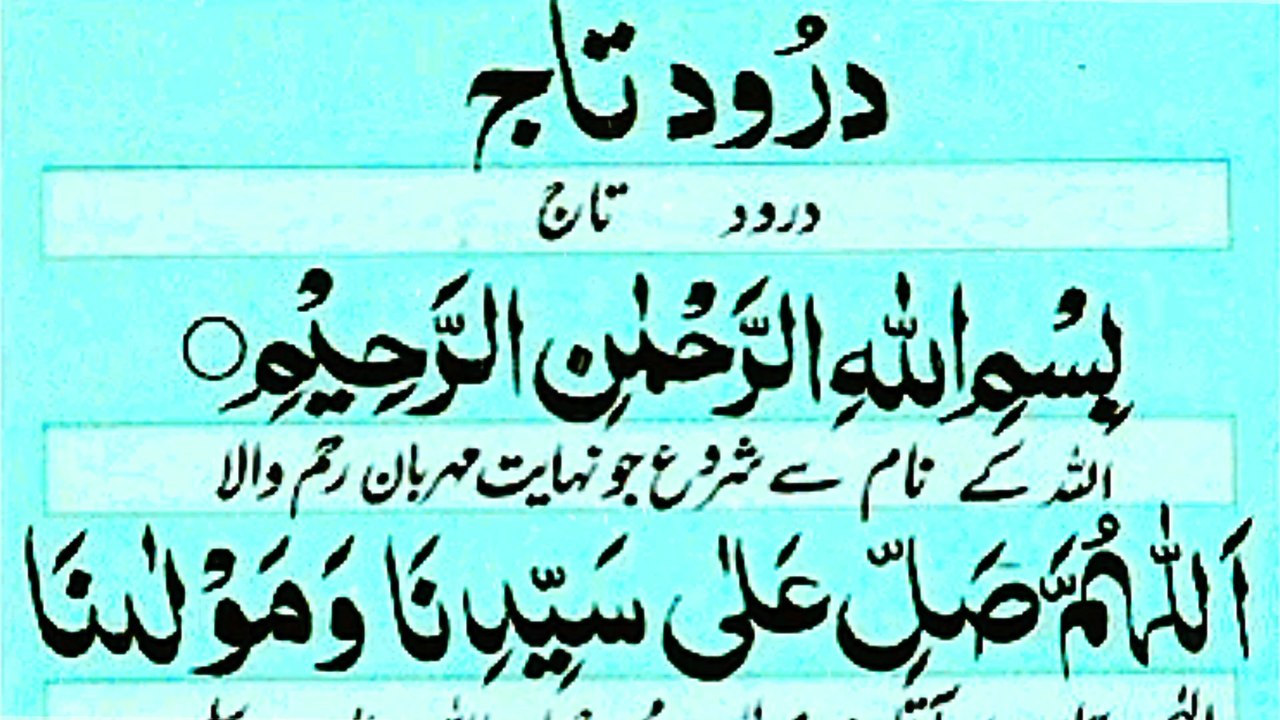 درُود تاج
درود تاج
بِسْمِ اللّٰهِ الرَّحْمٰنِ الرَّحِيْمِ○
اللہ کے نام سے شروع جو نہایت مہربان رحم والا
اَللّٰهُمَّ صَلِّ عَلٰى سَيِّدِنَا وَمَوْلٰىنَا